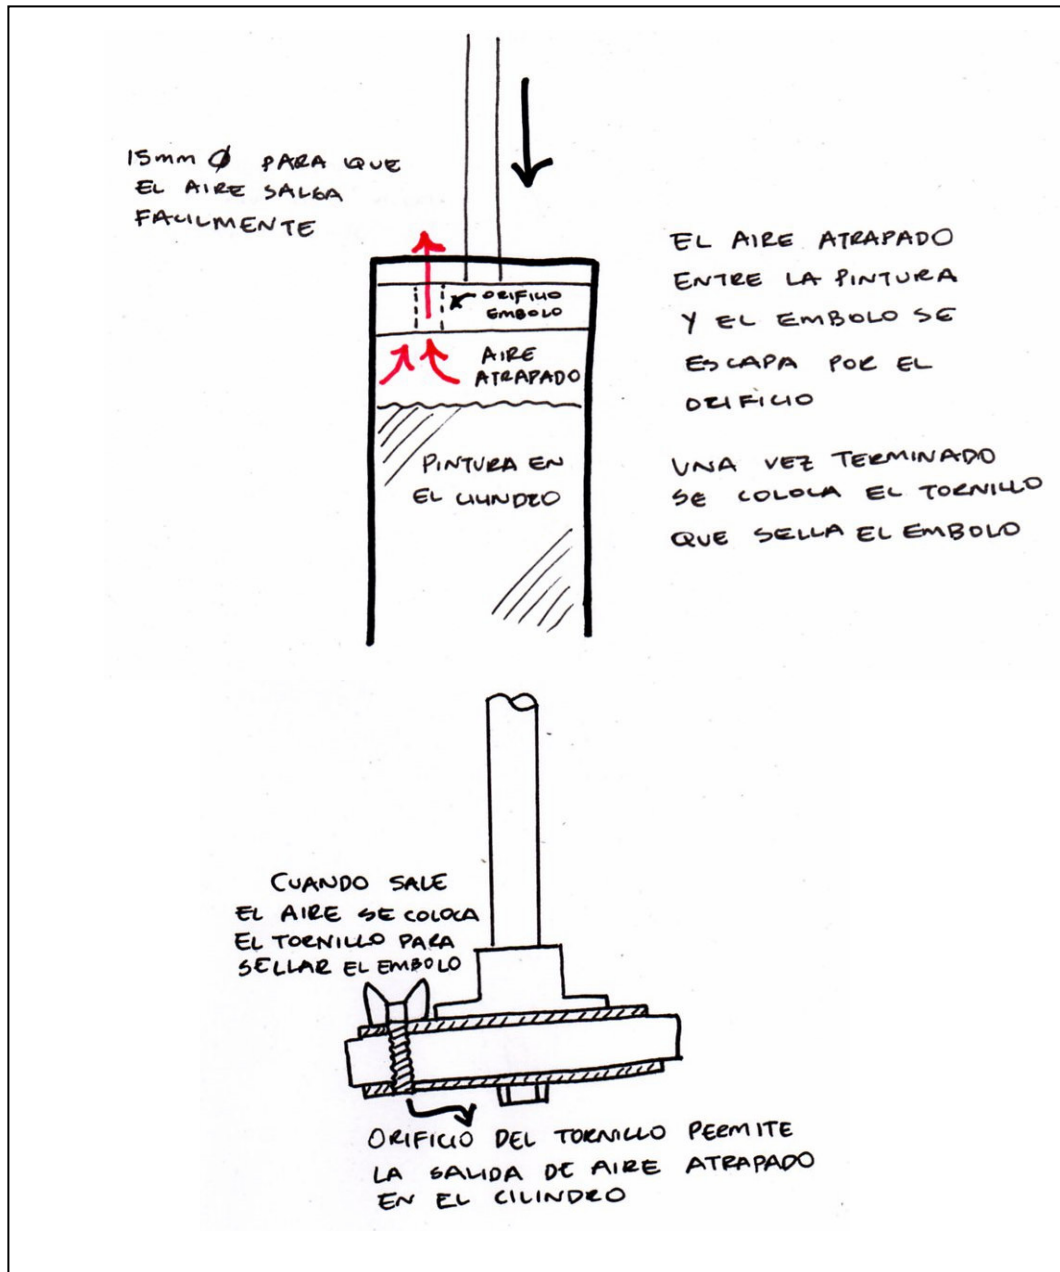 15mm Ø PARA QUE
EL AIRE SALGA
FACILMENTE
ORIFICIO
EMBOLO
AIRE
ATRAPADO
PINTURA EN
EL CILINDRO
EL AIRE ATRAPADO
ENTRE LA PINTURA
Y EL EMBOLO SE
ESCAPA POR EL
ORIFICIO
UNA VEZ TERMINADO
SE COLOCA EL TORNILLO
QUE SELLA EL EMBOLO
CUANDO SALE
EL AIRE SE COLOCA
EL TORNILLO PARA
SELLAR EL EMBOLO
ORIFICIO DEL TORNILLO PERMITE
LA SALIDA DE AIRE ATRAPADO
EN EL CILINDRO